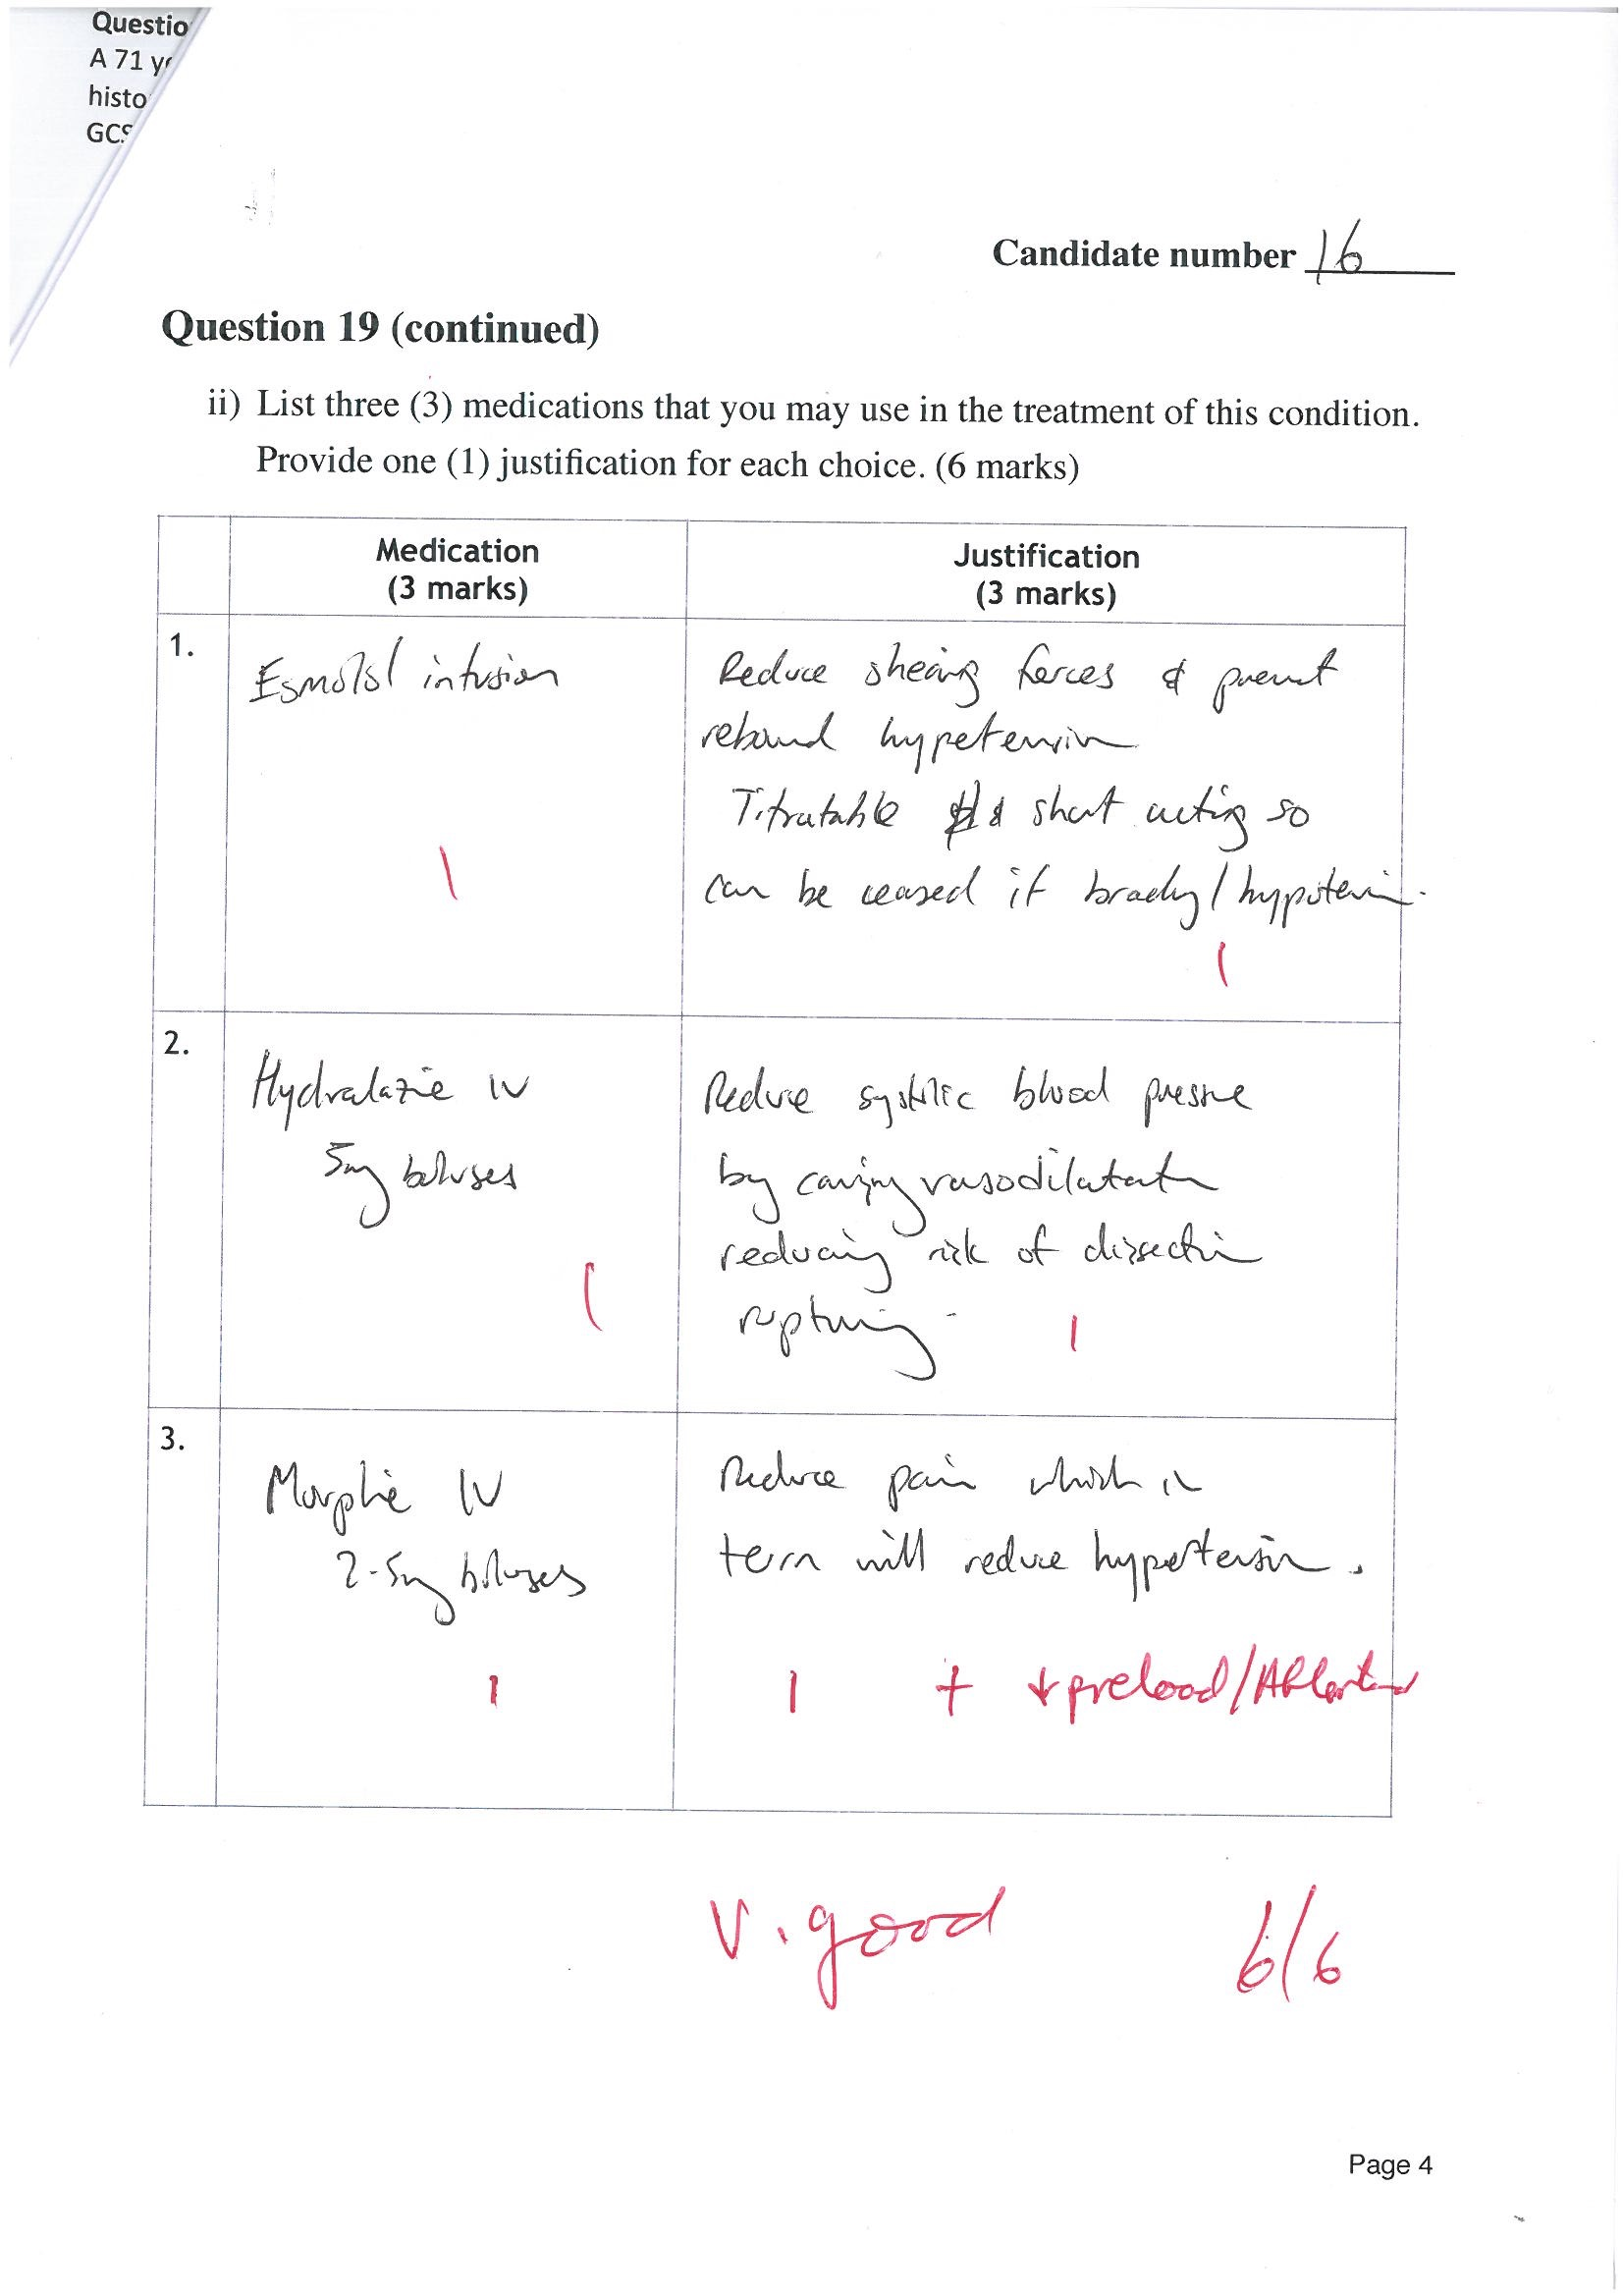 Questio
A 71 y
histo
GCS
Candidate number 16
Question 19 (continued)
ii) List three (3) medications that you may use in the treatment of this condition.
Provide one (1) justification for each choice. (6 marks)
Medication
(3 marks)
Justification
(3 marks)
1.
Esmolol infusion
1
Reduce shearing forces & prevent
rebound hypertension
Titratable & short acting so
can be ceased if brady/hypotension.
1
2.
Hydralazine IV
5mg boluses
1
Reduce systolic blood pressure
by causing vasodilatation
reducing risk of dissection
rupturing.
1
3.
Morphine IV
2-5mg boluses
1
Reduce pain which in
tern will reduce hypertension.
1 + ↓preload/Afterload
V. good 6/6
Page 4